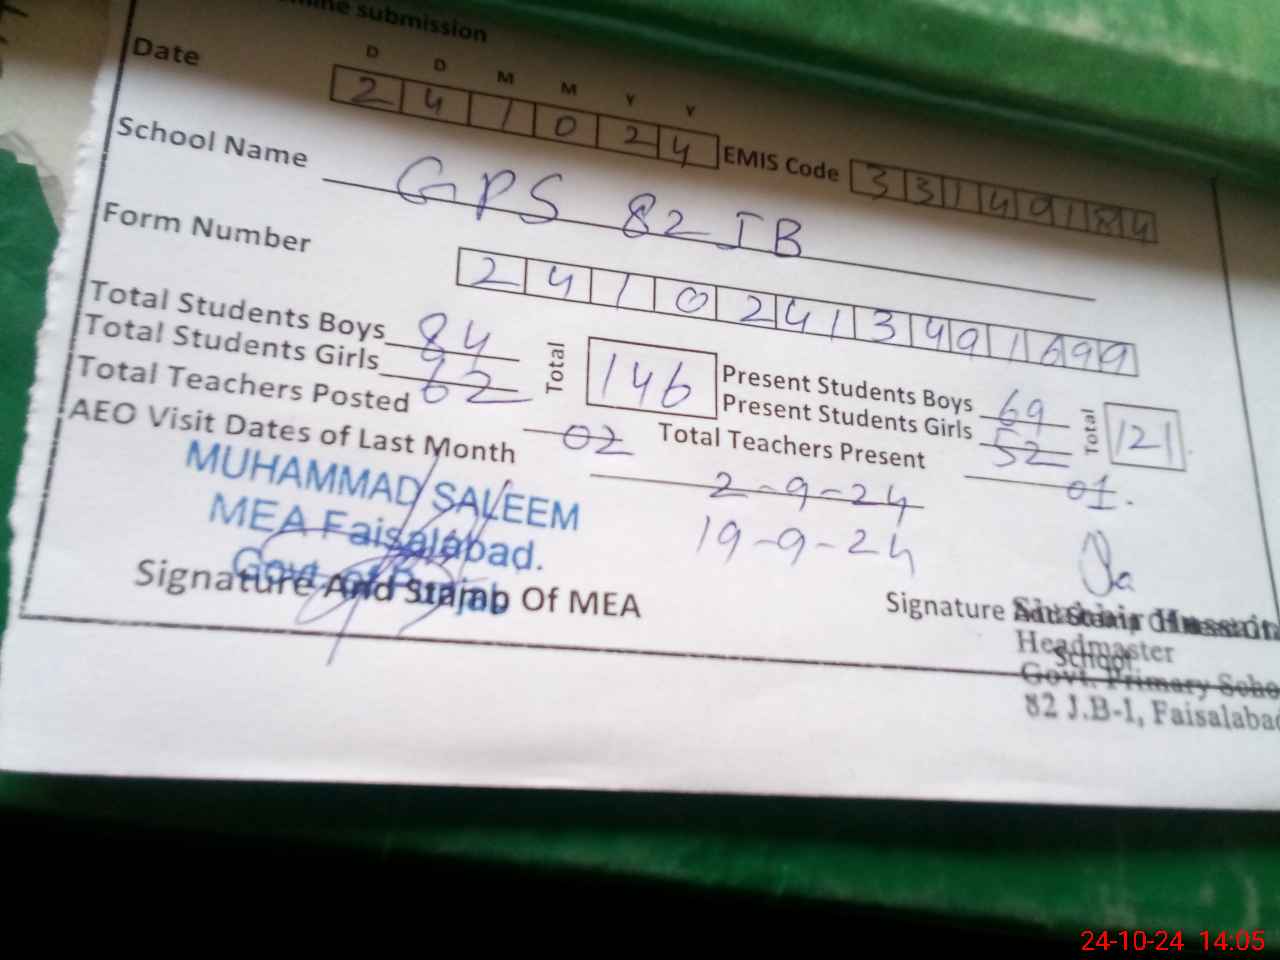 submission
Date
D D M M Y Y
2 4 1 0 2 4
EMIS Code 3 3 1 4 9 1 8 4
School Name GPS 82 JB
Form Number 2 4 1 0 2 4 1 3 4 9 1 6 9 9
Total Students Boys 84
Total Students Girls 62
Total 146
Present Students Boys 69
Present Students Girls 52
Total 121
Total Teachers Posted 02
Total Teachers Present 01.
AEO Visit Dates of Last Month 2-9-24
19-9-24
MUHAMMAD SALEEM
MEA Faisalabad.
Govt. of Punjab
Signature And Stamp Of MEA
Signature
Headmaster
School
Govt. Primary
82 J.B-I, Faisalabad
24-10-24 14:05